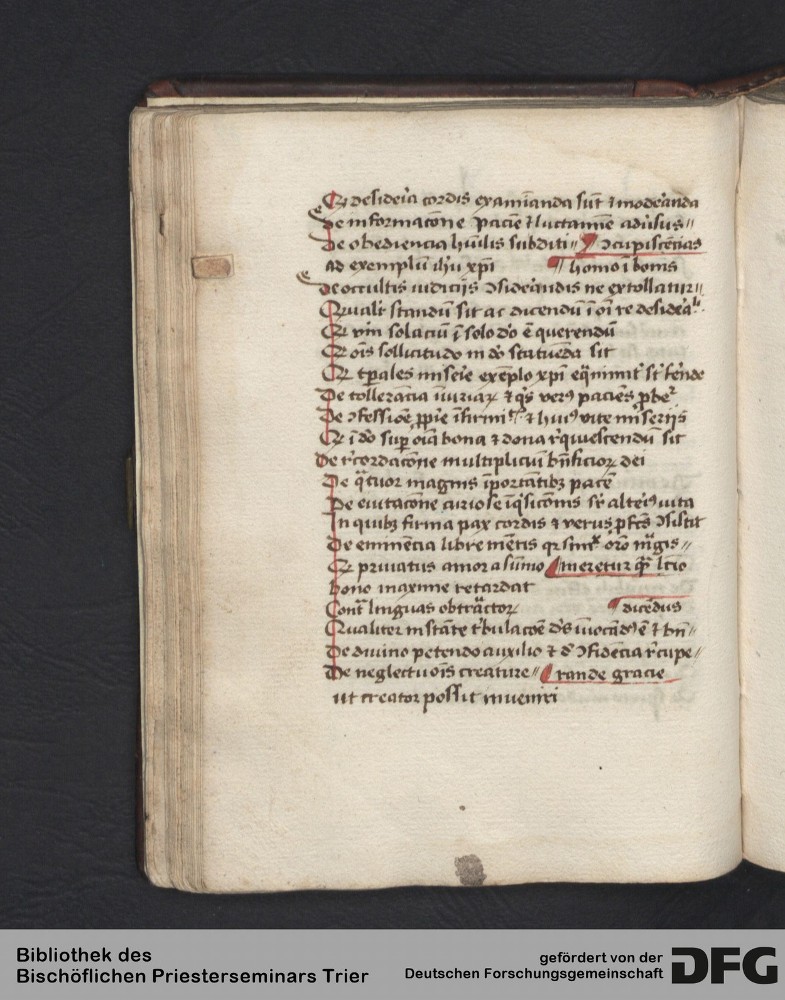 Qr desideria cordis examīanda sūt ⁊ moderāda
De informacōne paciē ⁊ luctamīe adūsus //
De obediencia hūilis subditi // ꝯcupiscēcias
ad exemplū ihū xpī ¶ homo ī bonis
De occultis iudicijs ꝯsiderādis ne extollatur //
Qualr̄ standū sit ac dicendū ī oī re desiderab
Qr solaciū ī solo dō ē querendū
Qr oīs sollicitudo in dō statuēda sit
Qr tp̄ales miserie exēplo xpī eq̄nimit̄ st̄ ferēde
De tollerācia iniuriaꝝ ⁊ q̄s verꝰ paciēs ꝓbet̄
De ꝯfessiōe ꝓpie īfirmit ⁊ huiꝰ vite miserijs
Qr ī dō suꝑ oīa bona ⁊ dona rq̄uiescendū sit
De recordacōne multipliciū bn̄ficioꝝ dei
De q̄tuor magnis īportātibꝫ pacē
De euitacōne curiose īq̄sicōnis sr̄ alteriꝰ uita
In quibꝫ firma pax cordis ⁊ verus ꝓfcs̄ ꝯsistit
De eminēcia libre mētis q̄ oro mgis //
Qr priuatus amor a sūmo ¶ meretur q̄ lcio
bono maxime retardat
Contͣ linguas obtrāctoꝝ ¶ dicēdus
Qualiter instāte t̄bulacōe ds̄ īuocādꝰ ē ⁊ bn̄ //
De diuino petendo auxilio ⁊ d̄ ꝯfidēcia rͤcupe //
De neglectu oīs creature // ¶ rande gracie
ut creator possit inueniri
Bibliothek des
Bischöflichen Priesterseminars Trier
gefördert von der
Deutschen Forschungsgemeinschaft
DFG